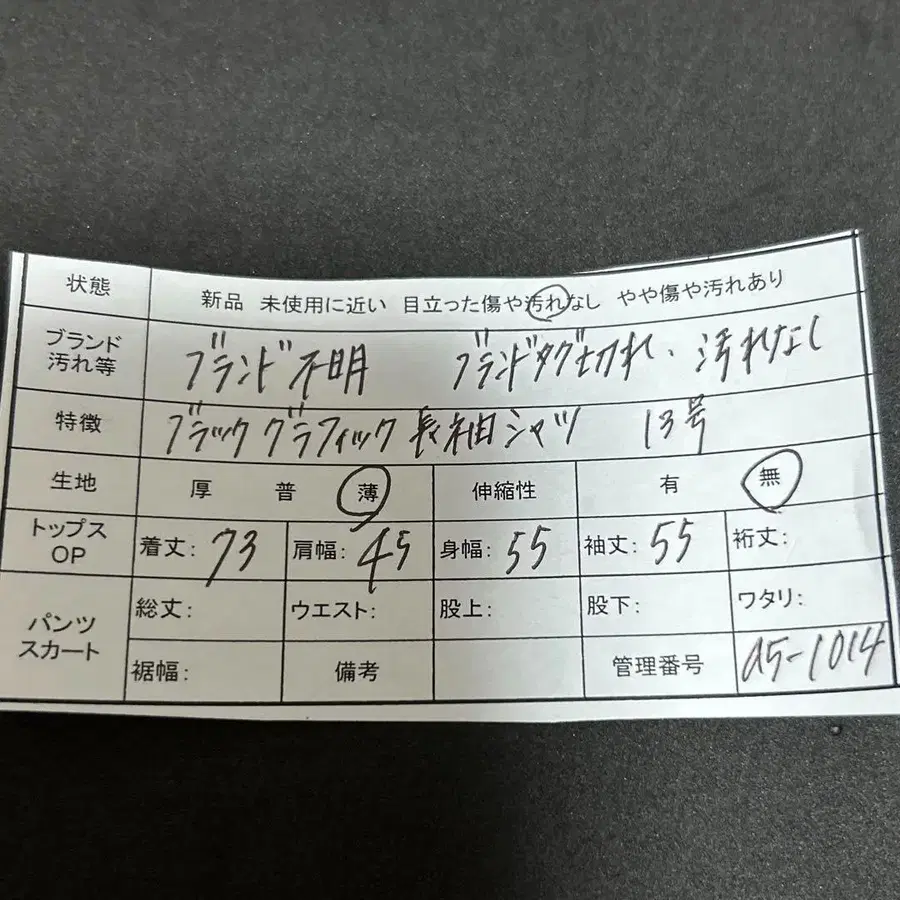 状態 新品 未使用に近い 目立った傷や汚れなし やや傷や汚れあり
ブランド 汚れ等 ブランド不明 ブランドタグ切れ、汚れなし
特徴 ブラック グラフィック 長袖シャツ 13号
生地 厚 普 薄 伸縮性 有 無
トップス OP 着丈: 73 肩幅: 45 身幅: 55 袖丈: 55 裄丈:
パンツ スカート 総丈: ウエスト: 股上: 股下: ワタリ:
裾幅: 備考 管理番号 a5-1014